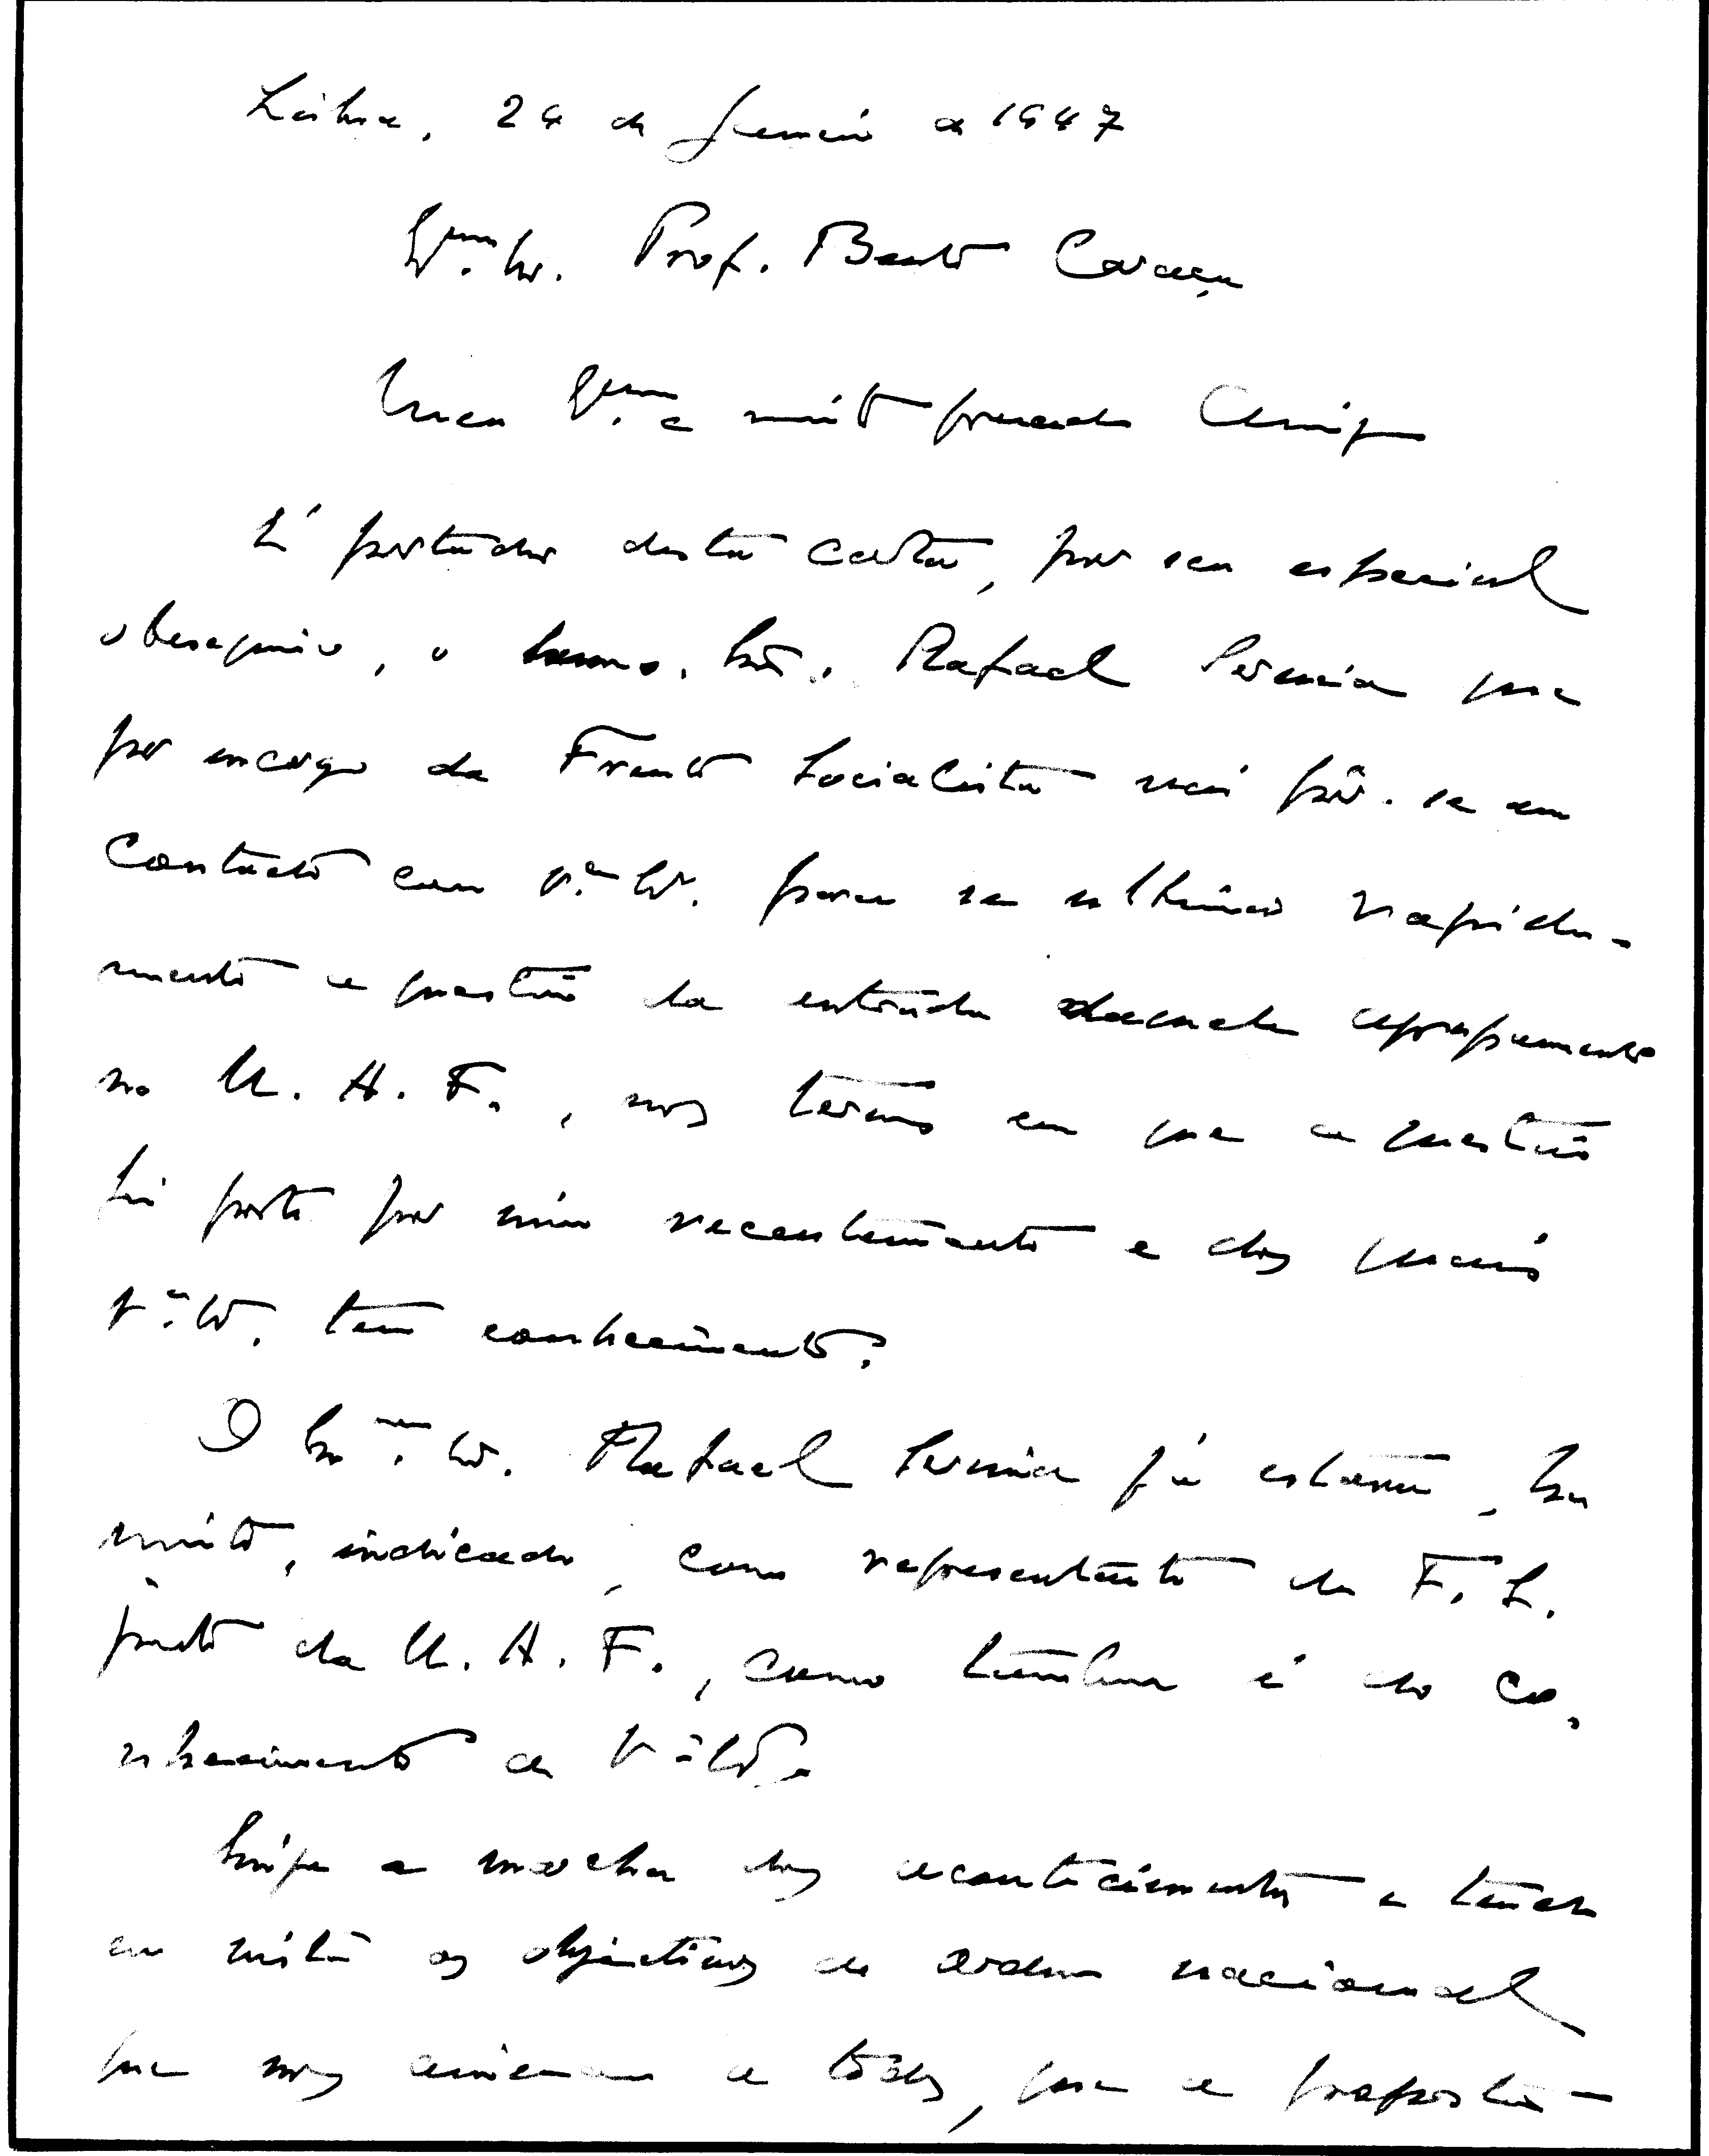 Lisboa, 24 de Janeiro de 1947
Exmo. Sr. Prof. Bento Caraça
Meu Exmo. e muito prezado Amigo
É portador desta carta, por seu especial
obsequio, o Exmo. Snr. Rafael que
por encargo da Frente Socialista vai pôr-se em
contacto com V.ª Ex.ª para se ultimar rapida-
mente a questão da entrada daquele agrupamento
no M. U. F., nos termos em que a questão
foi posta por mim recentemente e dos quais
V.ª Ex.ª tem conhecimento.
O Exmo. Sr. Rafael já estava, ha
muito, indicado, como representante da F. S.
junto da M. U. F., como tambem é do co-
nhecimento de V.ª Ex.ª
Exige a marcha dos acontecimentos e tendo
em vista os objectivos de ordem nacional
que nos animam a todos, que a proposta